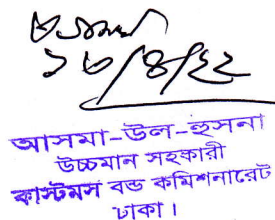 ১৮/৪/২২
আসমা-উল-হুসনা
উচ্চমান সহকারী
কাস্টমস বন্ড কমিশনারেট
ঢাকা।